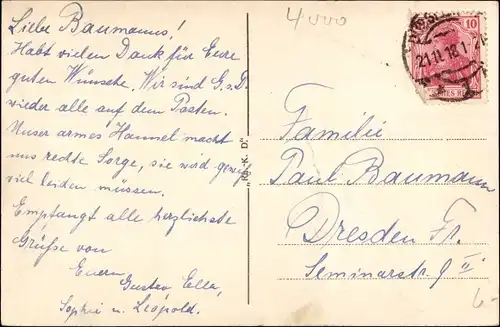 Liebe Baumanns!
Habt vielen Dank für Eure
guten Wünsche. Wir sind G. s. D.
wieder alle auf dem Posten.
Unser armes Hannel macht
uns rechte Sorge, sie wird gewiß
viel leiden müssen.
Empfangt alle herzlichste
Grüße von
Euern
Gustav, Ella,
Sophie u. Leopold.
4000
10
21.11.18. 1-2
Familie
Paul Baumann
Dresden Fr.
Seminarstr. 9 II
6-